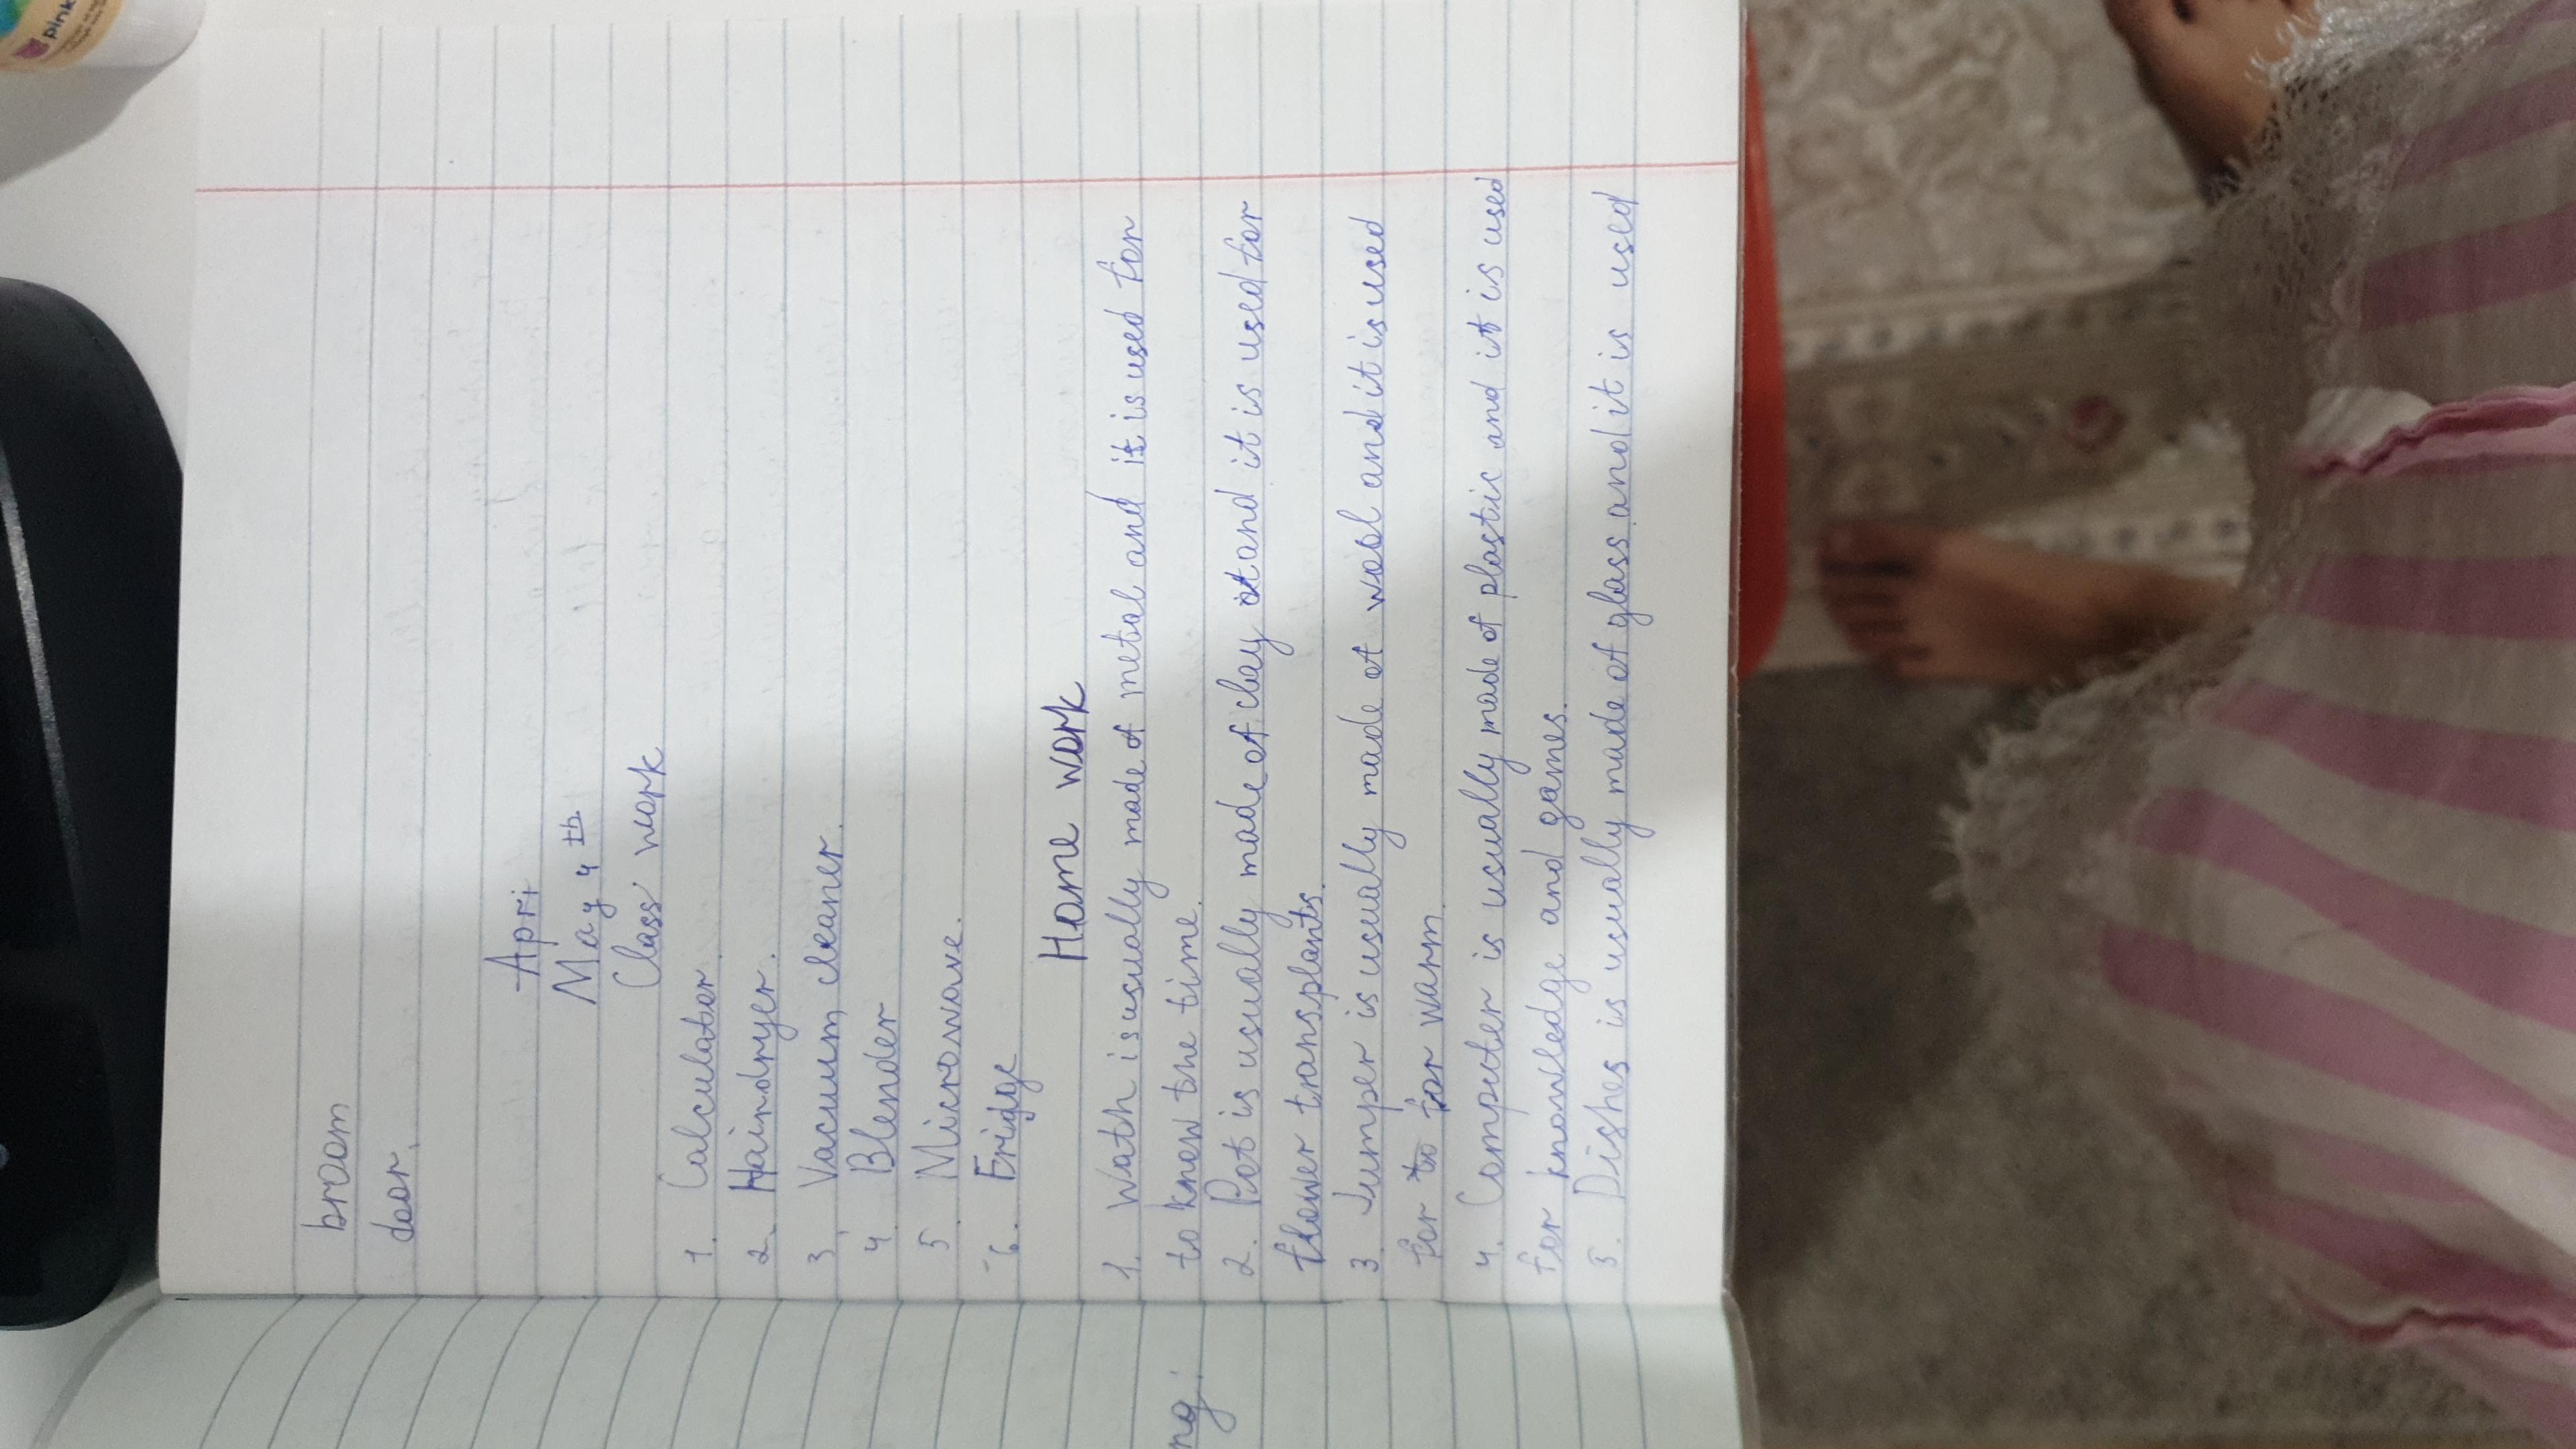 broom
door.
Apri
May 4th
Class work
1. Calculator.
2. Haindryer.
3. Vacuum cleaner.
4. Blender
5. Microwave.
6. Fridge
Home work
1. Wath is usually made of metal and it is used for
to know the time.
2. Pot is usually made of clay and it is used for
flower transplants.
3. Jumper is usually made of wool and it is used
for to for warm.
4. Computer is usually made of plastic and it is used
for knowledge and games.
5. Dishes is usually made of glass and it is used
ng.
pink